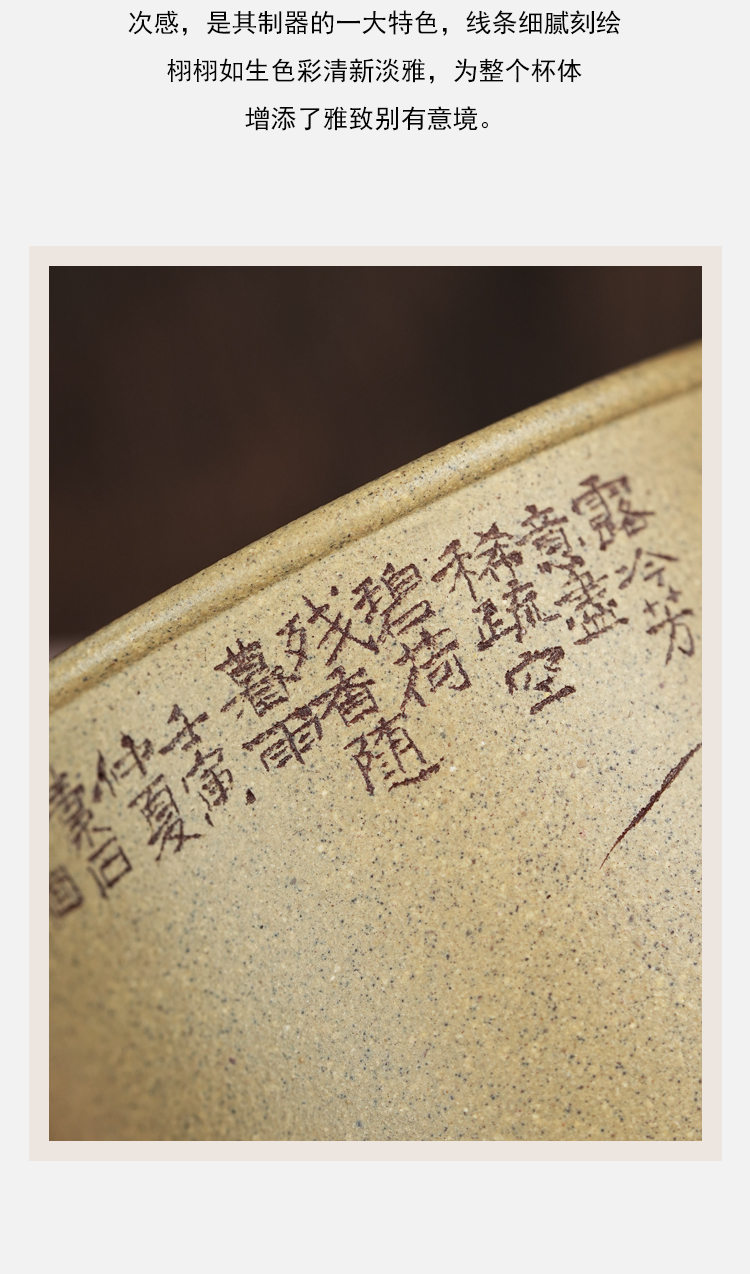 次感，是其制器的一大特色，线条细腻刻绘
栩栩如生色彩清新淡雅，为整个杯体
增添了雅致别有意境。
露冷芳
意盡
稀疏空
碧荷
残香隨
暮雨
壬寅
仲夏
石